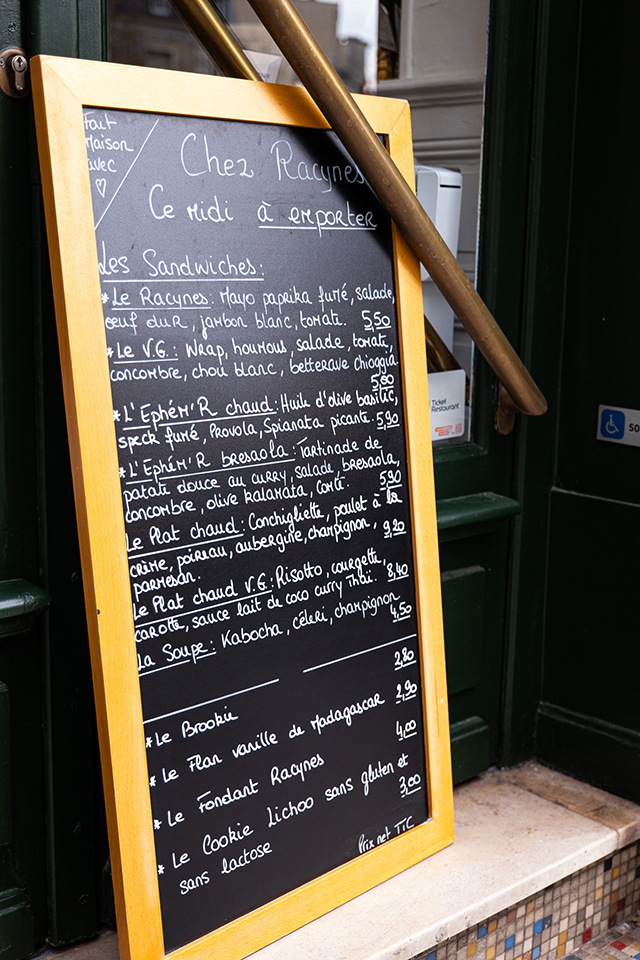 Fait
Maison
avec
♡
Chez Racynes
Ce midi à emporter
Les Sandwiches:
*Le Racynes: Mayo paprika fumé, salade,
oeuf dur, jambon blanc, tomate. 5,50
*Le V.G.: Wrap, houmous, salade, tomate,
concombre, chou blanc, betterave chioggia
5,80
*L'Ephém'R chaud: Huile d'olive basilic,
speck fumé, Provola, Spianata picante. 5,90
*L'Ephém'R bresaola: Tartinade de
patate douce au curry, salade, bresaola,
concombre, olive kalamata, comté. 5,90
Le Plat chaud: Conchigliette, poulet à la
crème, poireau, aubergine, champignon,
parmesan. 9,20
Le Plat chaud V.G: Risotto, courgette,
carotte, sauce lait de coco curry Thaï. 8,40
La Soupe: Kabocha, céleri, champignon 4,50
*Le Brookie 2,80
*Le Flan vanille de Madagascar 2,90
*Le Fondant Racynes 4,00
*Le Cookie Lichoo sans gluten et
sans lactose 3,00
Prix net TTC
Ticket
Restaurant
SO